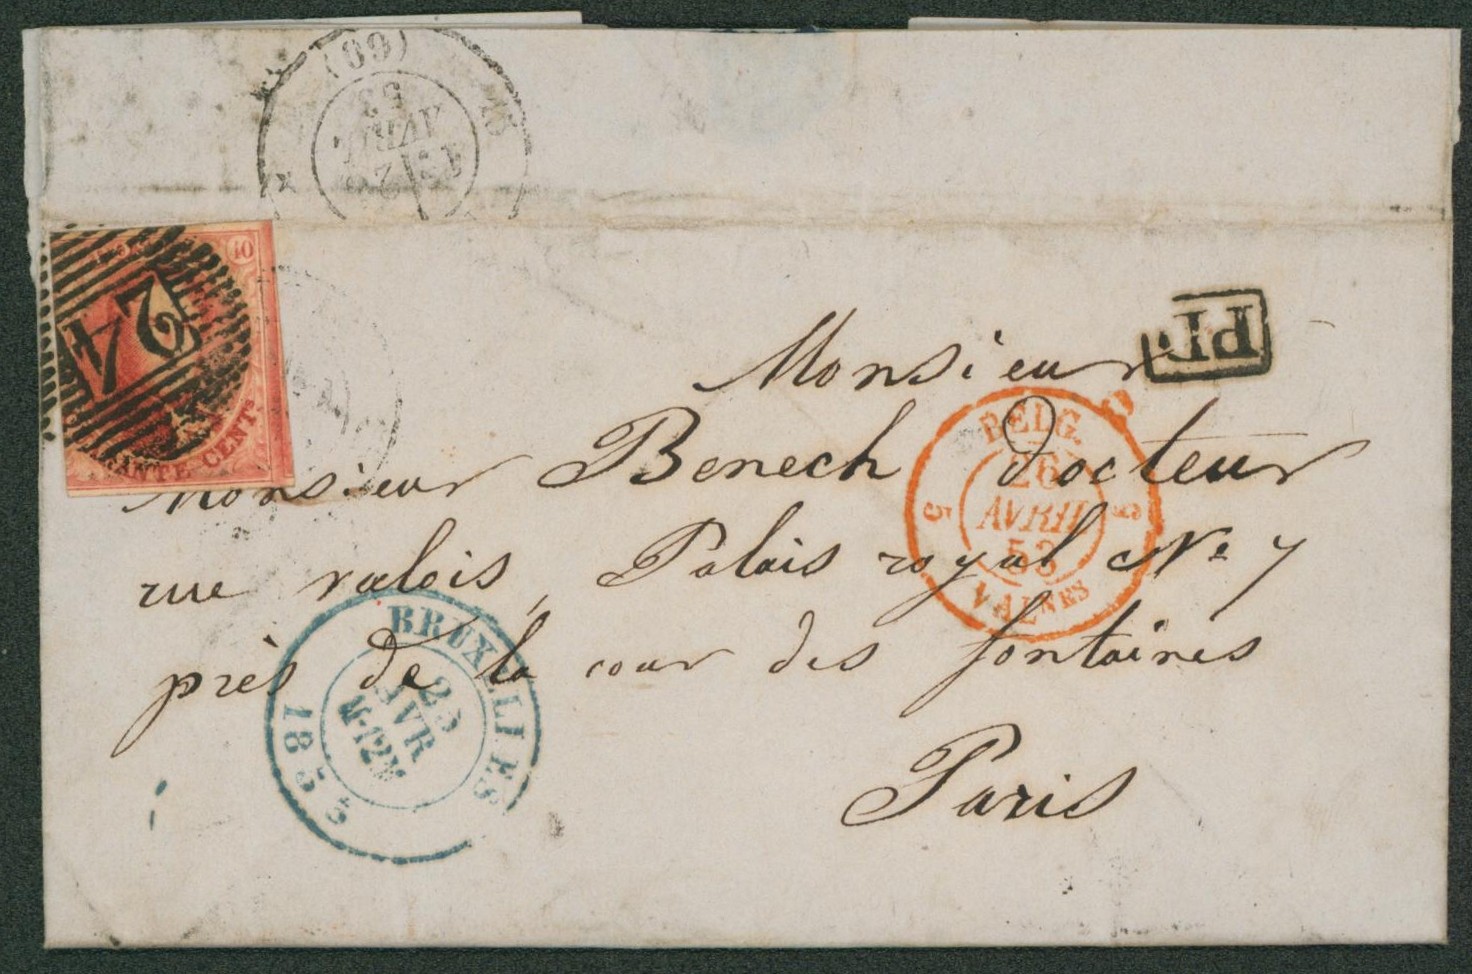 (60)
AVRIL
53
10
24
QUARANTE CENTS
PD.
Monsieur
Monsieur Benech Docteur
rue valois, Palais royal No 7
près de la cour des fontaines
Paris
BELG.
5 5
26
AVRIL
53
VALNES
BRUXELLES
25
AVR
M-12M
1853